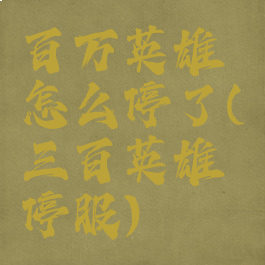 百万英雄
怎么停了(
三百英雄
停服)